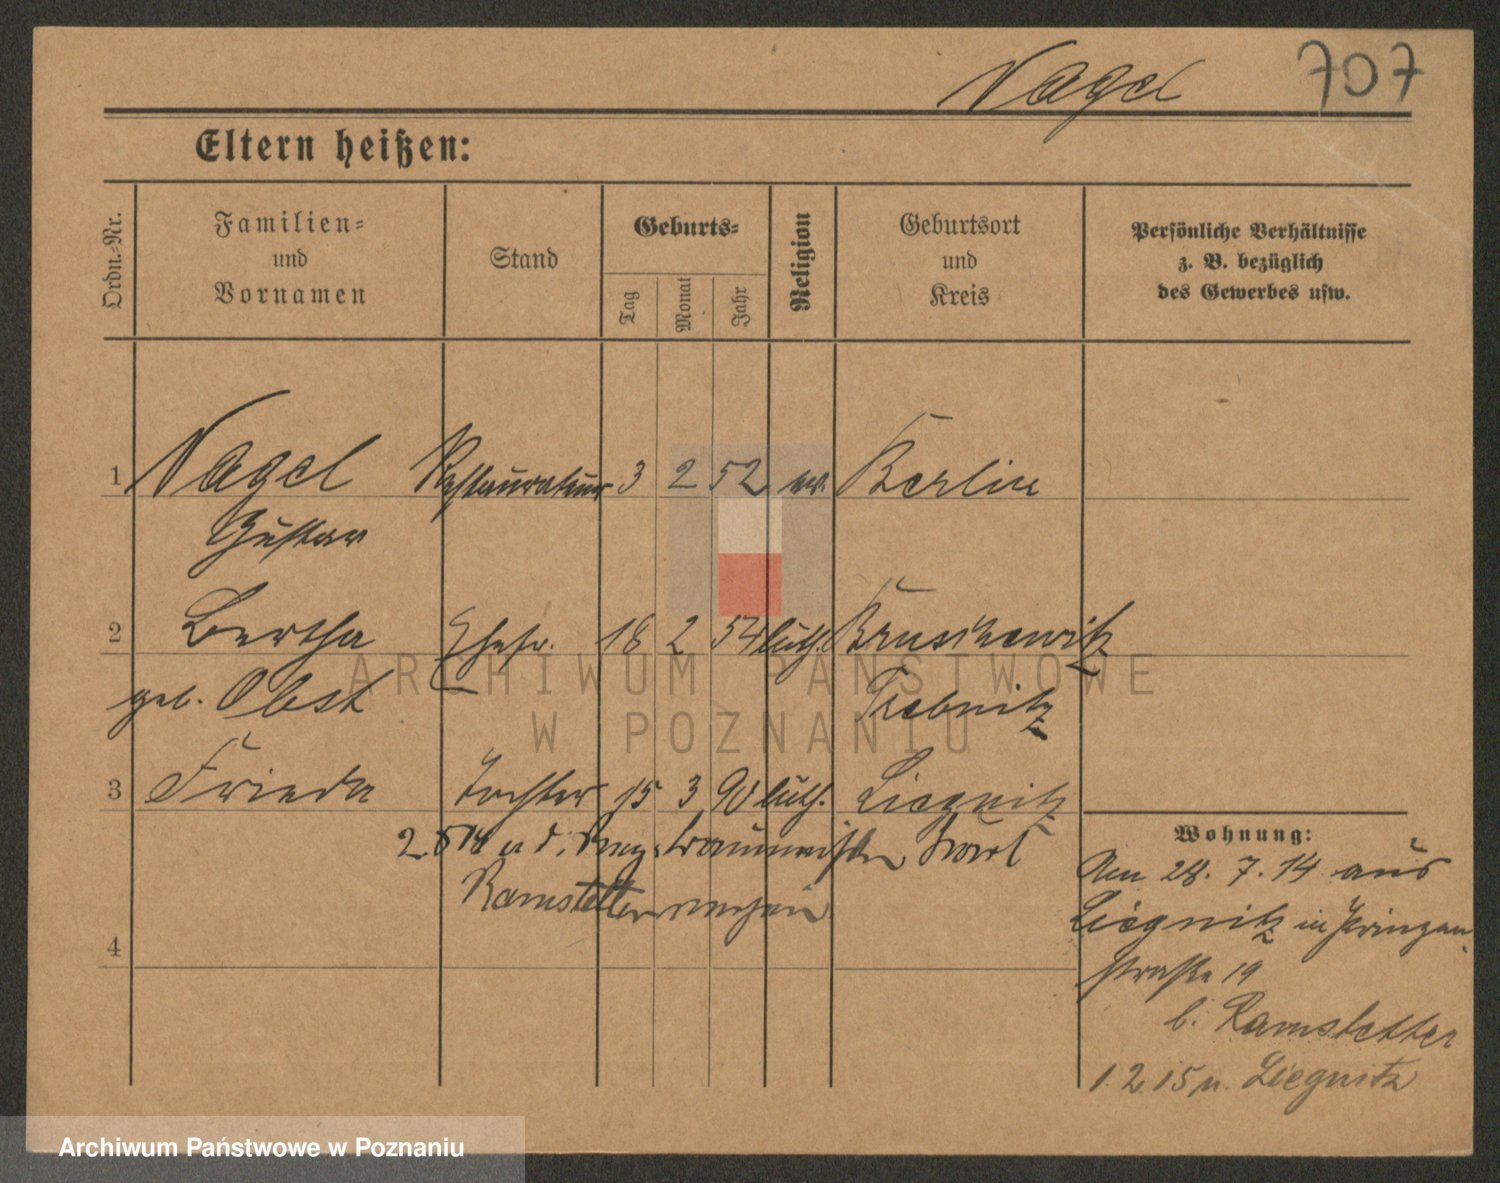 Nagel 707
Eltern heißen:
Ordn.-Nr.
Familien-
und
Vornamen
Stand
Geburts-
Tag
Monat
Jahr
Religion
Geburtsort
und
Kreis
Persönliche Verhältnisse
z. B. bezüglich
des Gewerbes usw.
1 Nagel Restaurateur 3 2 52 ev. Berlin
Gustav
2 Bertha Ehefr. 18 2 54 luth. Bruschewitz
geb. Obst Trebnitz
3 Frieda Tochter 15 3 90 luth. Liegnitz
2.8 14 Karl
Ramstetter
4
Wohnung:
Am 28. 7. 14 aus
Liegnitz in Prinzen-
straße 19
b. Ramstetter
1.2.15 n. Liegnitz
ARCHIWUM PAŃSTWOWE
W POZNANIU
Archiwum Państwowe w Poznaniu